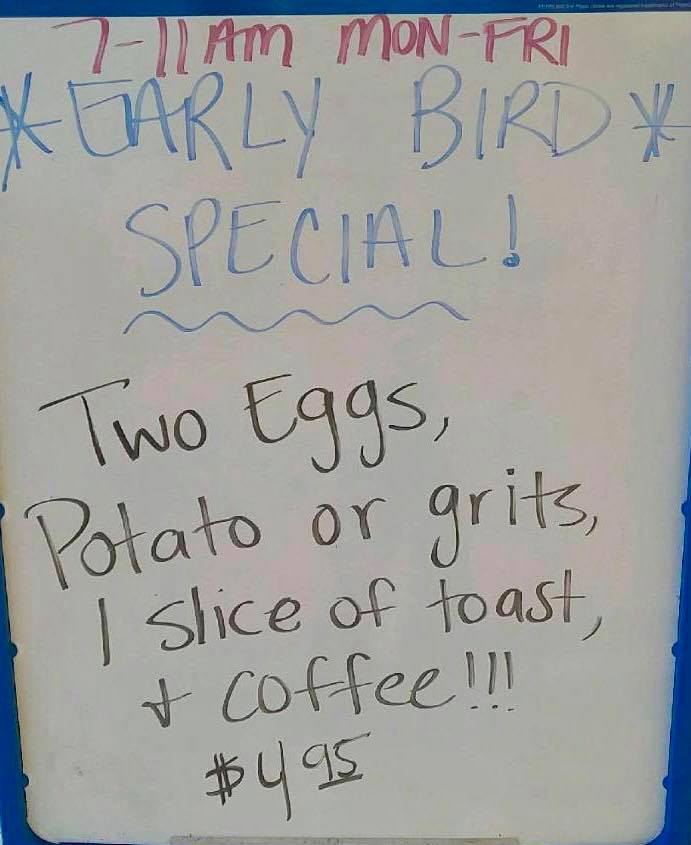 7-11AM MON-FRI
*EARLY BIRD*
SPECIAL!
Two Eggs,
Potato or grits,
1 slice of toast,
+ coffee!!!
$4 95